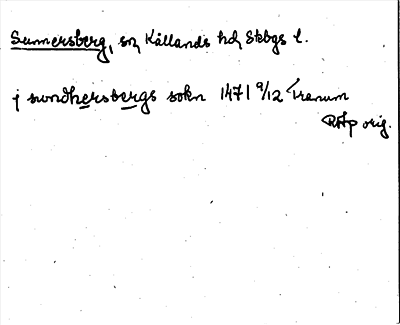 Sunnersberg, sn, Kållands hd, Skbgs l.
j swndhersbergs sokn 1471 9/12 Tranum
RAp orig.